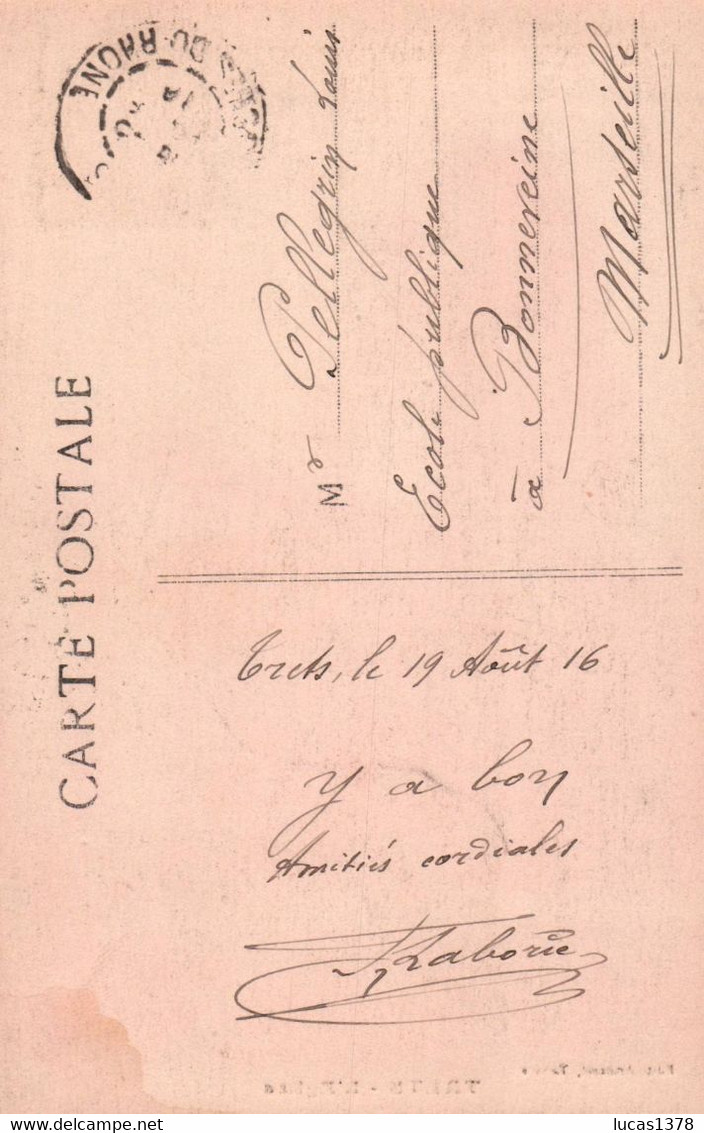 CARTE POSTALE
DU-RHONE
Mr Pellegrin Louis
Ecole publique
à Bonneveine
Marseille
Trets, le 19 Août 16
y a bon
Amitiés cordiales
Laborie
TRETS - L'Eglise
lucas1378